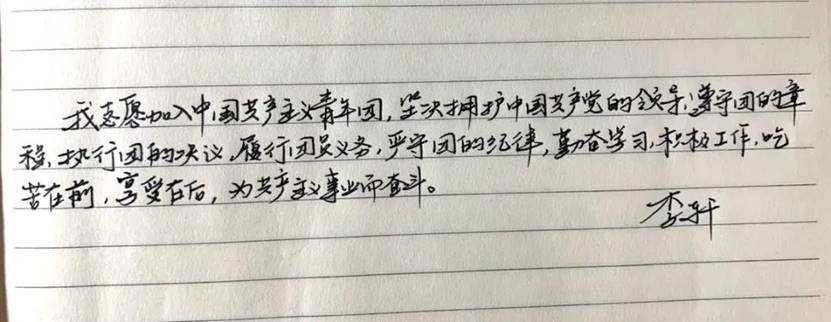 我志愿加入中国共产主义青年团，坚决拥护中国共产党的领导，遵守团的章
程，执行团的决议，履行团员义务，严守团的纪律，勤奋学习，积极工作，吃
苦在前，享受在后，为共产主义事业而奋斗。
李轩